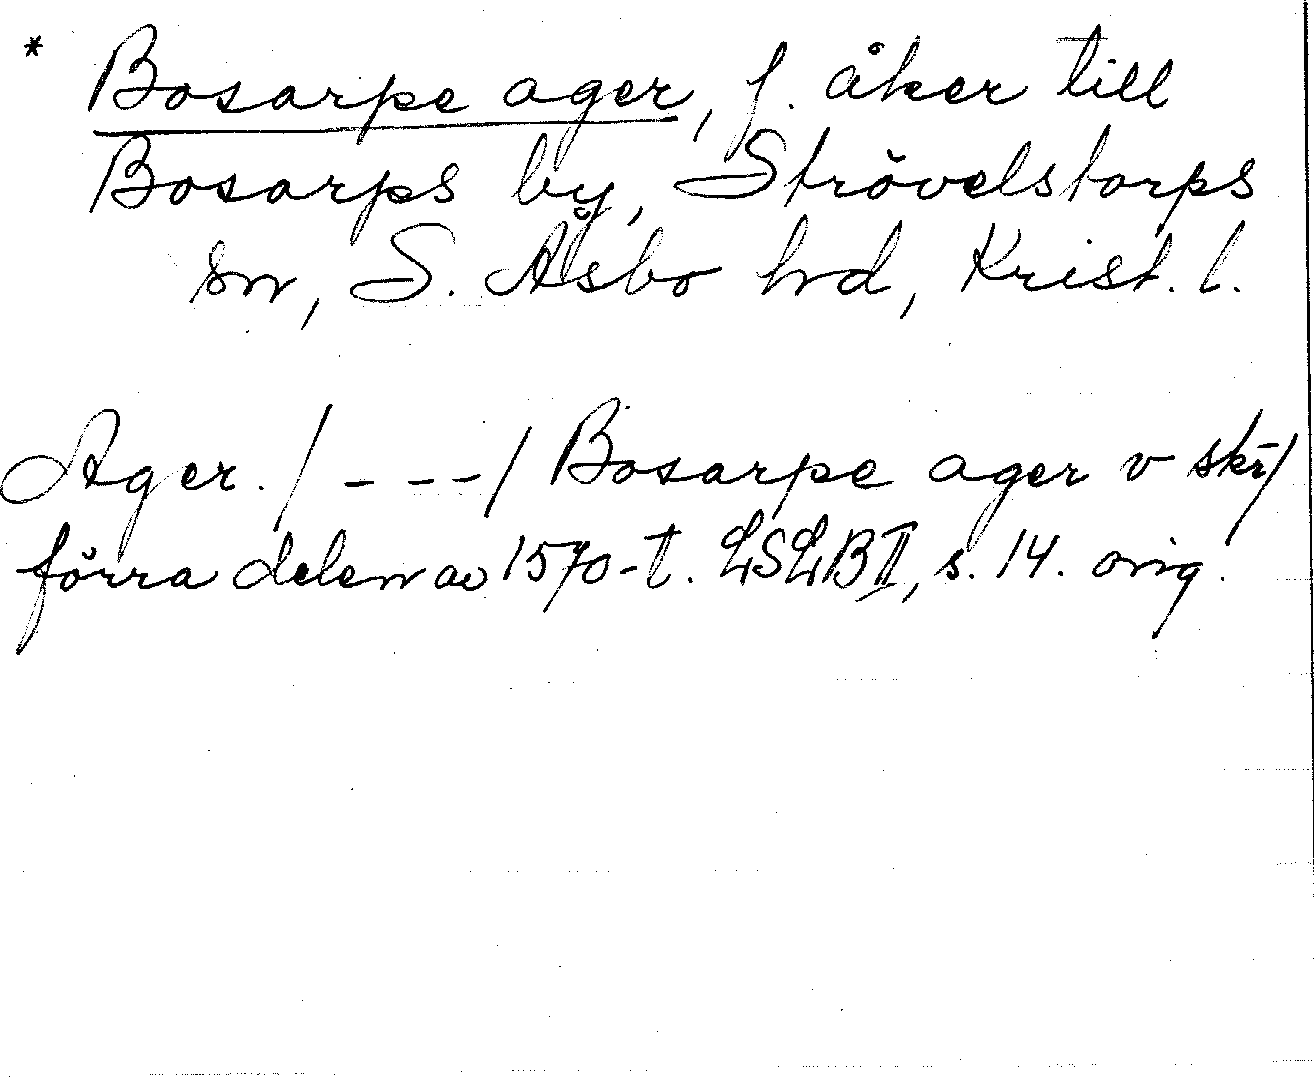 * Bosarpe ager, f. åker till
Bosarps by, Strövelstorps
sn, S. Åsbo hd, Krist. l.
Ager. / - - -/ Bosarpe ager v skr/
förra delen av 1570-t. LSLB II, s. 14. orig.